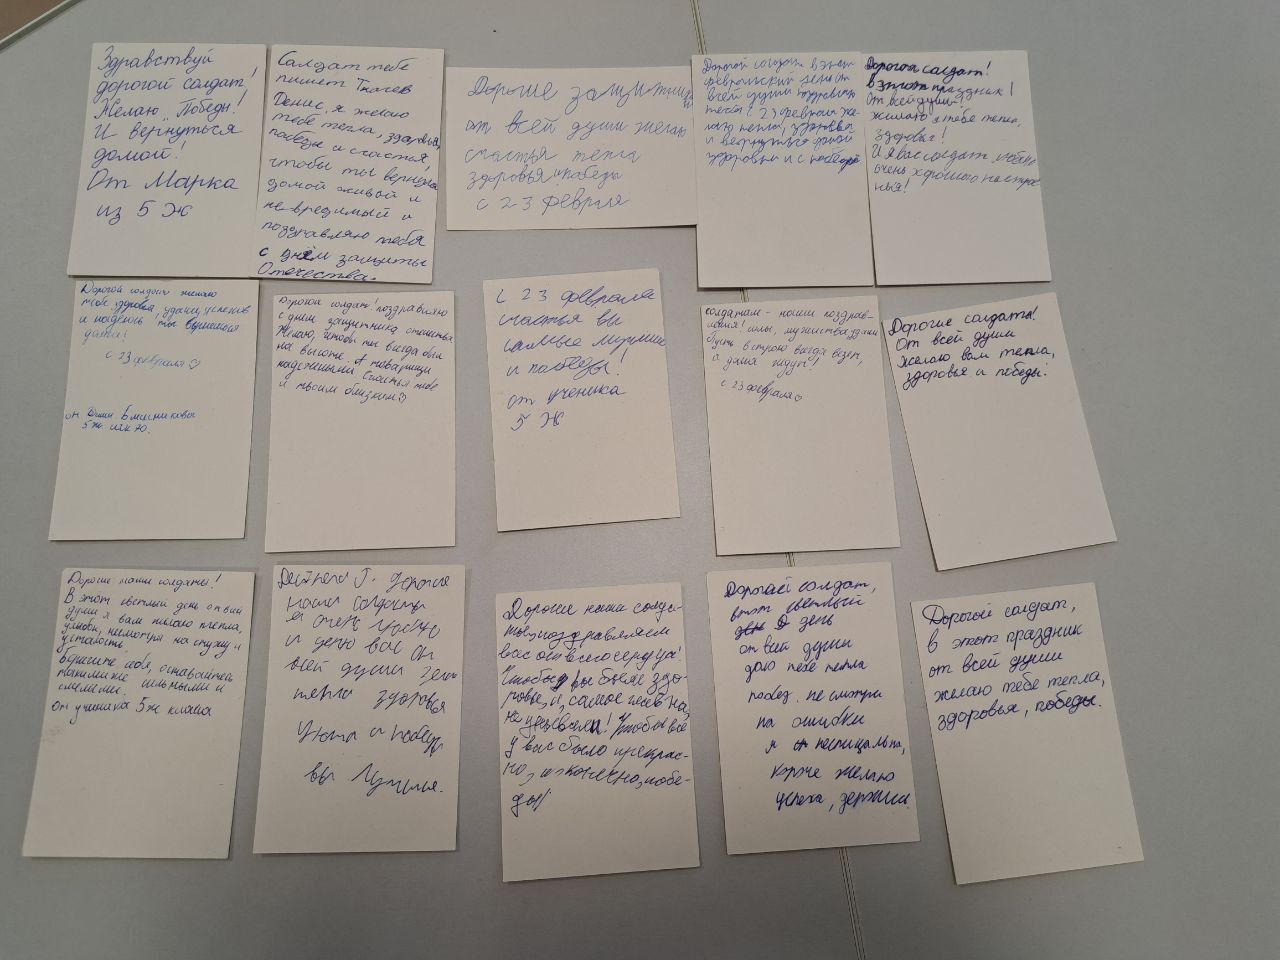 Здравствуй
дорогой солдат!
Желаю "Победы!
И вернуться
домой!
От Марка
из 5 Ж
Солдат тебе
пишет Ткачев
Денис, я желаю
тебе тепла, здоровья,
победы и счастья,
чтобы ты вернулся
домой живой и
не вредимый и
поздравляю тебя
с днём защиты
Отечества.
Дорогие защитники
от всей души желаю
счастья тепла
здоровья и победы
с 23 февраля
Дорогой солдат в этот
февральский день от
всей души поздравляю
тебя с 23 февраля же-
лаю тепла, здоровья
и вернуться домой
здоровым и с победой
Дорогой солдат!
в этот праздник!
От всей души!
желаю я тебе тепла,
здоровья!
И я вас солдат
очень хорошого настрое
нья!
Дорогой солдат желаю
тебе здоровья, удачи, успехов
и надеюсь ты вернешься
с 23 февраля♡
от
5 Ж
Дорогой солдат! поздравляю
с днём защитника отечества
Желаю, чтобы ты всегда был
на высоте, а товарищи
надёжными Счастья тебе
и твоим близким♡
С 23 февраля
счастья вы
самые лучшие
и победы!
от ученика
5 Ж
солдатам - наши поздрав-
ления! силы, мужества, удачи
Пусть в строю всегда везет,
а дома ждут!
с 23 февраля♡
Дорогие солдаты!
От всей души
желаю вам тепла,
здоровья и победы.
Дорогие наши солдаты!
В этот светлый день от всей
души я вам желаю тепла,
улыбки, несмотря на службу и
усталость
берегите себя, оставайтесь
такими же сильными и
смелыми.
От ученика 5ж класса
Г. Дорогие
наши солдаты
я очень люблю
и ценю вас от
всей души
тепла здоровья
Уюта и победы
вы Лучшие.
Дорогие наши солда-
ты, поздравляем
вас от всего сердца!
Чтобы вы были здо-
ровы, и, самое главно
не
Чтобы всё
у вас было прекрас-
но, и конечно, побе-
ды!
Дорогой солдат,
этот светлый
день
от всей души
даю тебе тепла
побед, не смотри
на ошибки
я неспицально,
короче желаю
успеха, держись.
Дорогой солдат,
в этот праздник
от всей души
желаю тебе тепла,
здоровья, победы.